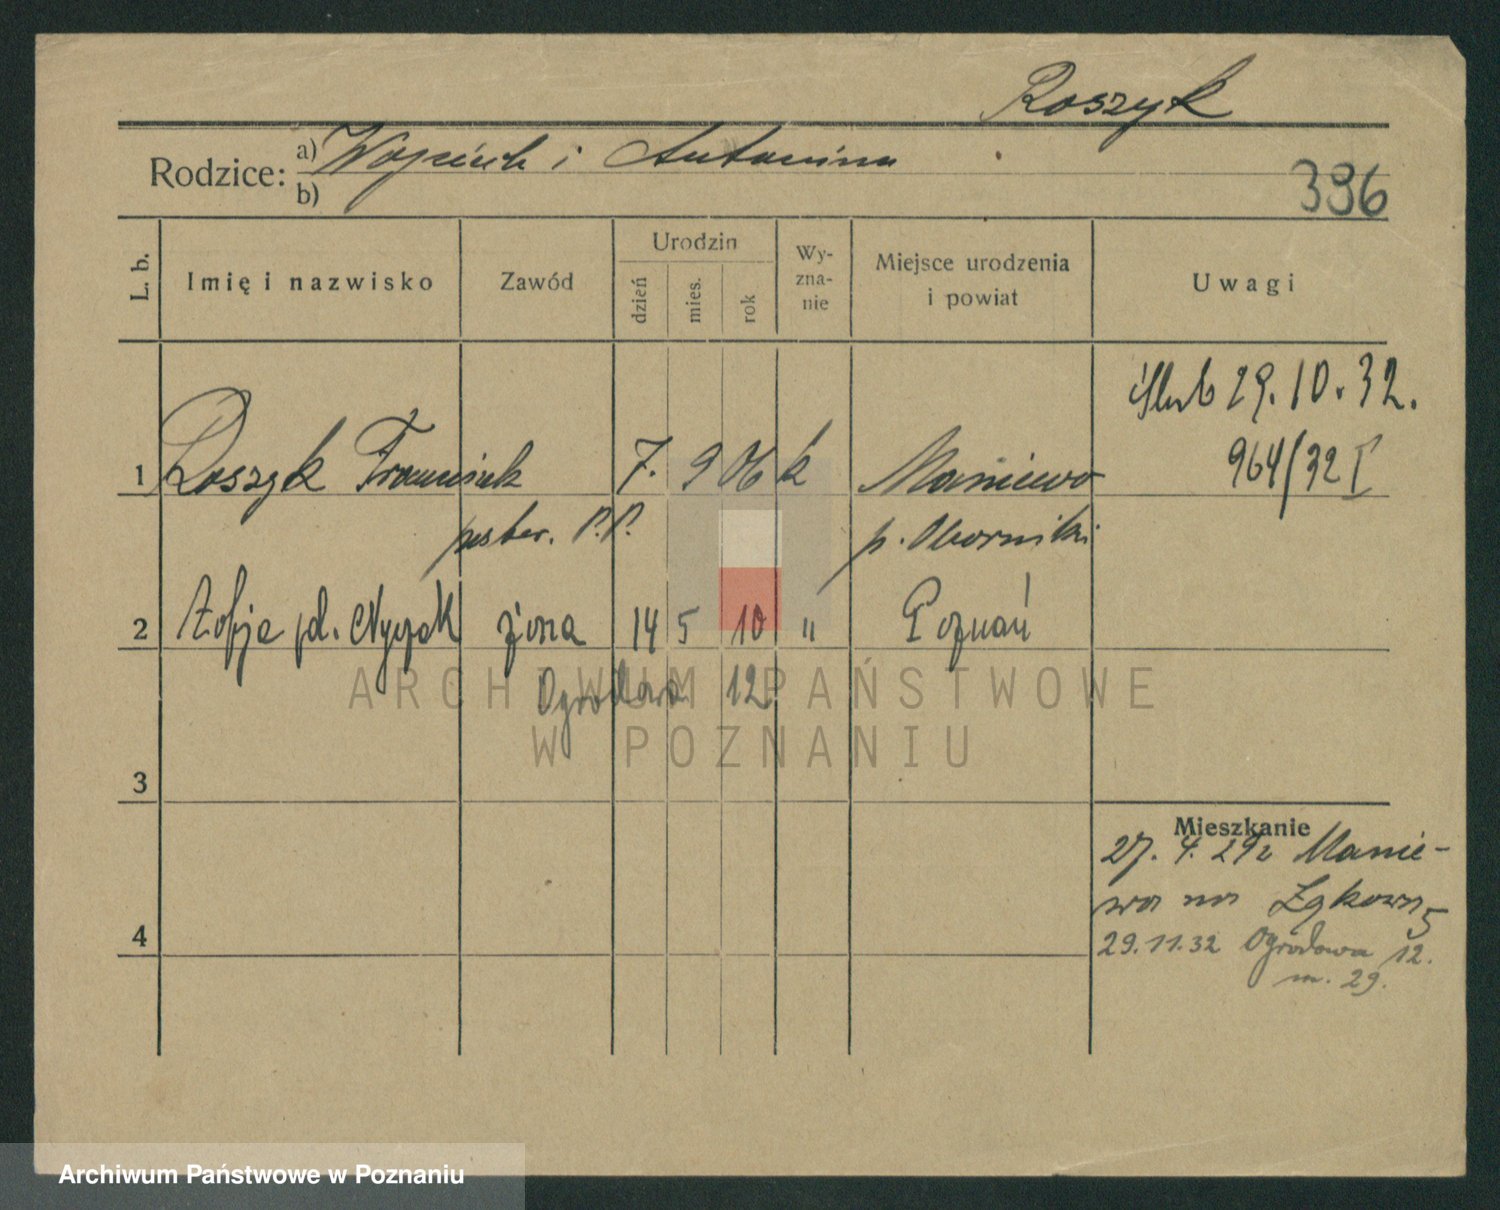 Roszyk
Rodzice: a) Wojciech i Antonina
b)
396
L. b. Imię i nazwisko Zawód Urodzin dzień mies. rok Wyznanie Miejsce urodzenia i powiat Uwagi
ślub 29.10.32.
1 Roszyk Franciszek 7. 9 06 k Maniewo 964/32 I
poster. P.P. p. Oborniki
2 Zofja żona 14 5 10 " Poznań
Ogrodowa 12
ARCHIWUM PAŃSTWOWE
W POZNANIU
3
Mieszkanie
27. 4. 29 z Manie-
wa na 5
4
29.11.32 Ogrodowa 12.
m. 29.
Archiwum Państwowe w Poznaniu